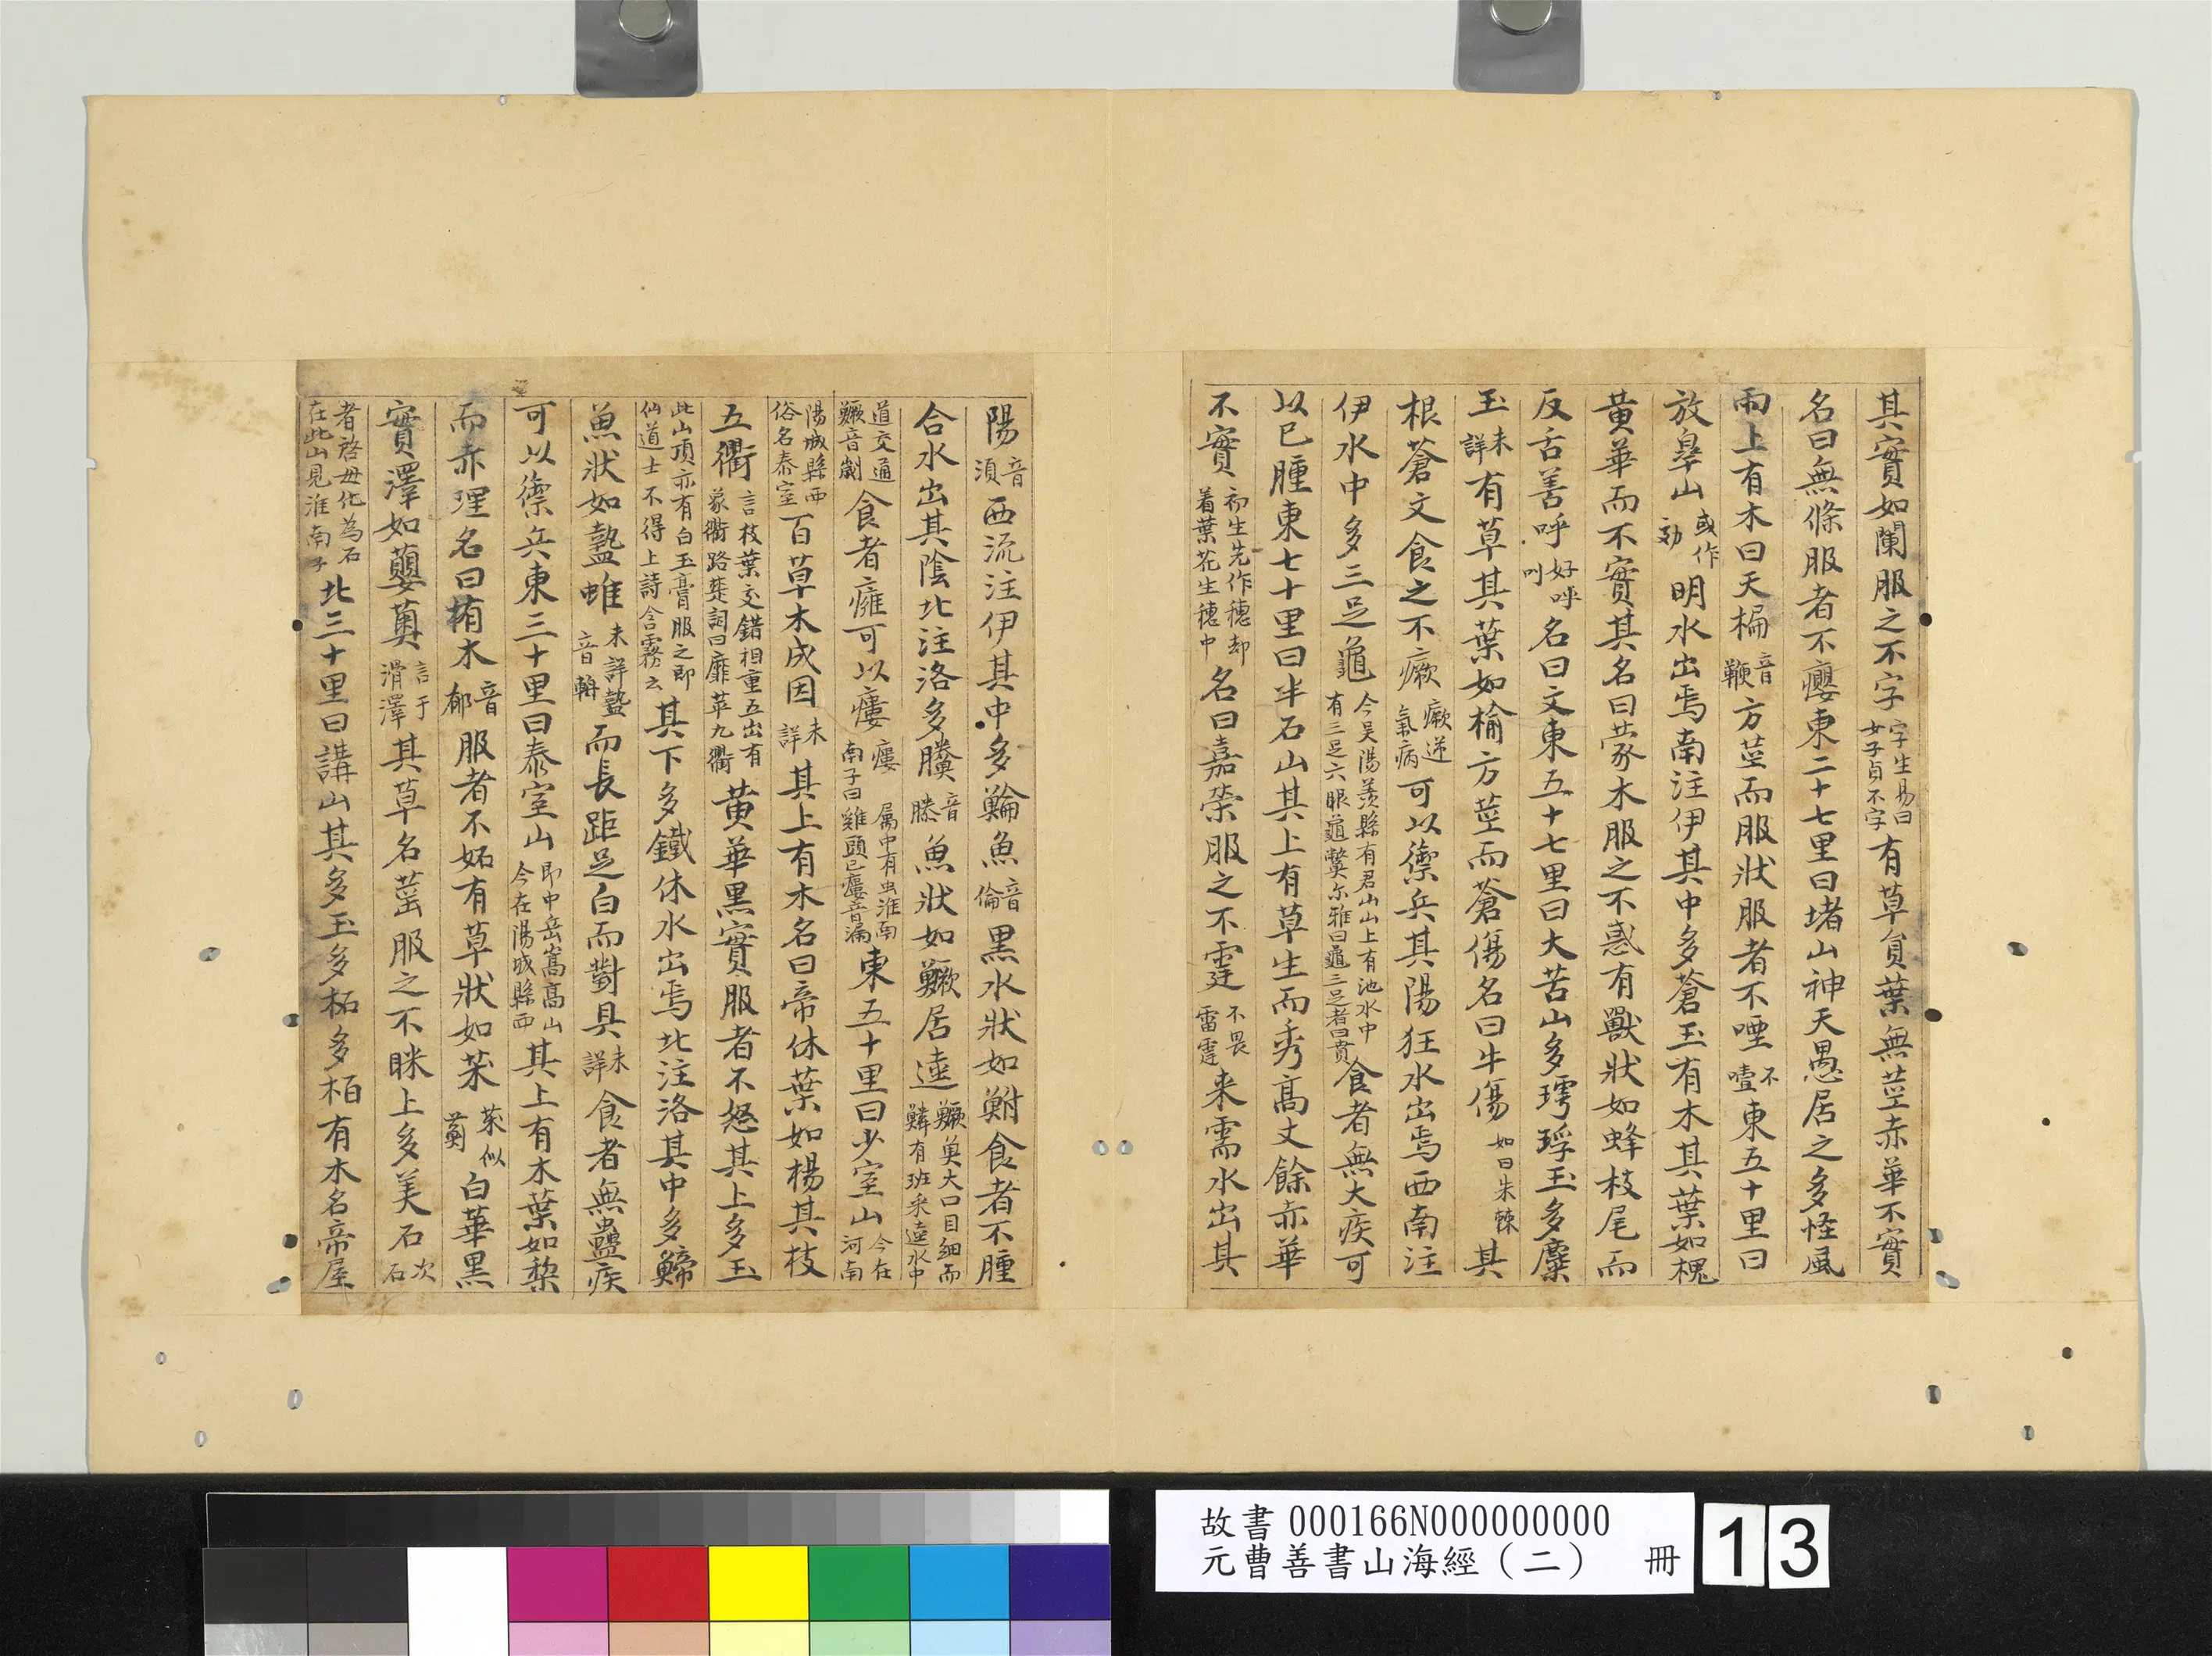 其實如闌服之不字字生易曰女子貞不字有草負葉無莖赤華不實
名曰無條服者不癭東二十七里曰堵山神天愚居之多怪風
雨上有木曰天楄音鞭方莖而服狀服者不㖶不噎東五十里曰
放皋山或作効明水出焉南注伊其中多蒼玉有木其葉如槐
黃華而不實其名曰蒙木服之不惑有獸狀如蜂枝尾而
反舌善呼好呼叫名曰文東五十七里曰大苦山多㻬琈玉多麋
玉未詳有草其葉如榆方莖而蒼傷名曰牛傷如曰朱棘其
根蒼文食之不癥瘚逆氣病可以禦兵其陽狂水出焉西南注
伊水中多三足龜今吳陽羨縣有君山山上有池水中有三足六眼龜鱉尔雅曰龜三足者曰賁食者無大疾可
以已腫東七十里曰半石山其上有草生而秀高丈餘赤華
不實初生先作穗却着葉花生穗中名曰嘉荣服之不霆不畏雷霆来需水出其
陽音湏西流注伊其中多鯩魚音倫黑水狀如鮒食者不腫
合水出其陰北注洛多䲢音滕魚狀如鱖居逵鱖魚大口目細而鱗有班采逵水中
道交通鱖音劌食者癰可以瘻瘻屬中有虫淮南南子曰雞頭已瘻音漏東五十里曰少室山今在河南
陽城縣西俗名泰室百草木成囷未詳其上有木名曰帝休葉如楊其枝
五衢言枝葉交錯相重五出有象衢路楚詞曰靡萃九衢黃華黑實服者不怒其上多玉
此山頂亦有白玉膏服之即仙道士不得上詩含霧云其下多鐵休水出焉北注洛其中多䱱
魚狀如盩蜼未詳盩音輈而長距足白而對具未詳食者無蠱疾
可以禦兵東三十里曰泰室山即中岳嵩高山今在陽城縣西其上有木葉如棃
而赤理名曰栯木音郁服者不妬有草狀如茱茱似薊白華黑
實澤如蘡薁言于滑澤其草名䔄服之不眯上多美石次石
者啓母化為石在此山見淮南子北三十里曰講山其多玉多柘多栢有木名帝屋
故書000166N000000000
元曹善書山海經（二） 冊 13